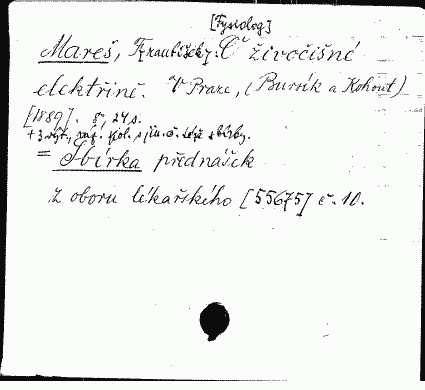 [Fysiolog]
Mareš, František: O živočišné
elektřině. V Praze, (Bursík a Kohout)
[1889]. 8°, 24 s.
+ 3 výt.,
= Sbírka přednášek
z oboru lékařského [55675] č. 10.